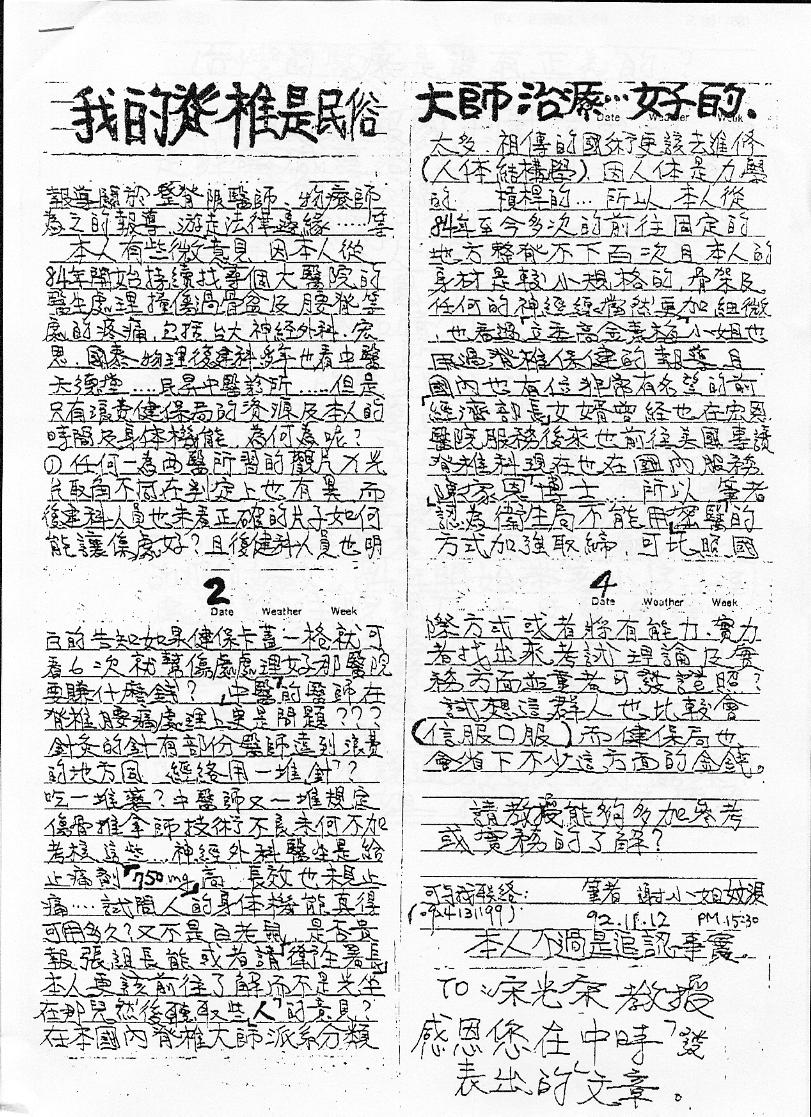 我的脊椎是民俗
大師治療…好的.
報導關於整脊限醫師、物療師
為之的報導,游走法律邊緣……等
本人有些微意見,因本人從
84年開始持續找尋個大醫院的
醫生處理撞傷過骨盆及腰脊等
處的疼痛,包括台大神經外科、宏
恩、國泰…物理復建科多年也看中醫
天德堂……民昇中醫診所……但是
只有浪費健保局的資源及本人的
時間及身体機能,為何為呢?
①任何一為西醫所習的觀片X光
片取角不同在判定上也有異,而
復建科人員也未看正確的片子如何
能讓傷處好?且復健科人員也明
2
Date Weather Week
白的告知如果健保卡蓋一格就可
看6次就幫傷處處理好那醫院
要賺什麼錢?「中醫」的醫師在
脊椎腰痛處理上更是問題???
針灸的針有部份醫師達到浪費
的地方固 經絡用一堆針??
吃一堆藥?中醫師又一堆規定
傷骨推拿師技術了不良未何不加
考核這些…神經外科醫生是給
止痛劑「750mg」高 長效也未見止
痛…試問人的身体機能真得
可用多久?又不是白老鼠,是否貴
報張組長能或者請「衛生署長」
本人要該前往了解而不是光坐
在那兒然後聽取些「人」的意見?
在本國內脊椎大師派系分類
Date Weather Week
太多.祖傳的國術更該去進修
(人体結構學)因人体是力學
的 槓桿的…所以本人從
84年至今多次的前往固定的
地方整脊不下百次且本人的
身材是較小規格的,骨架及
任何的神經經當然更加細微
,也看過「立委高金素梅」小姐也
用過脊椎保健的報導且
國內也有位非常有名望的前
「經濟部長女婿曾經也在宏恩
醫院服務後來也前往美國專讀
脊椎科現在也在國內服務
「陳家恩」博士…所以筆者
認為衛生局不能用「密醫」的
方式加強取締,可比照國
4
Date Weather Week
際方式或者將有能力、實力
者找出來考試理論及實
務方面並業者可發證照?
試想這群人也比較會
(信服口服)而健保局也
會省下不少這方面的金錢。
請教授能夠多加參考
或實務的了解?
可與我聯絡: 筆者 謝小姐
92.11.12 PM.15:30
本人不過是追認事實
TO:宋光 教授
感恩您在中時「發
表出的」文章。